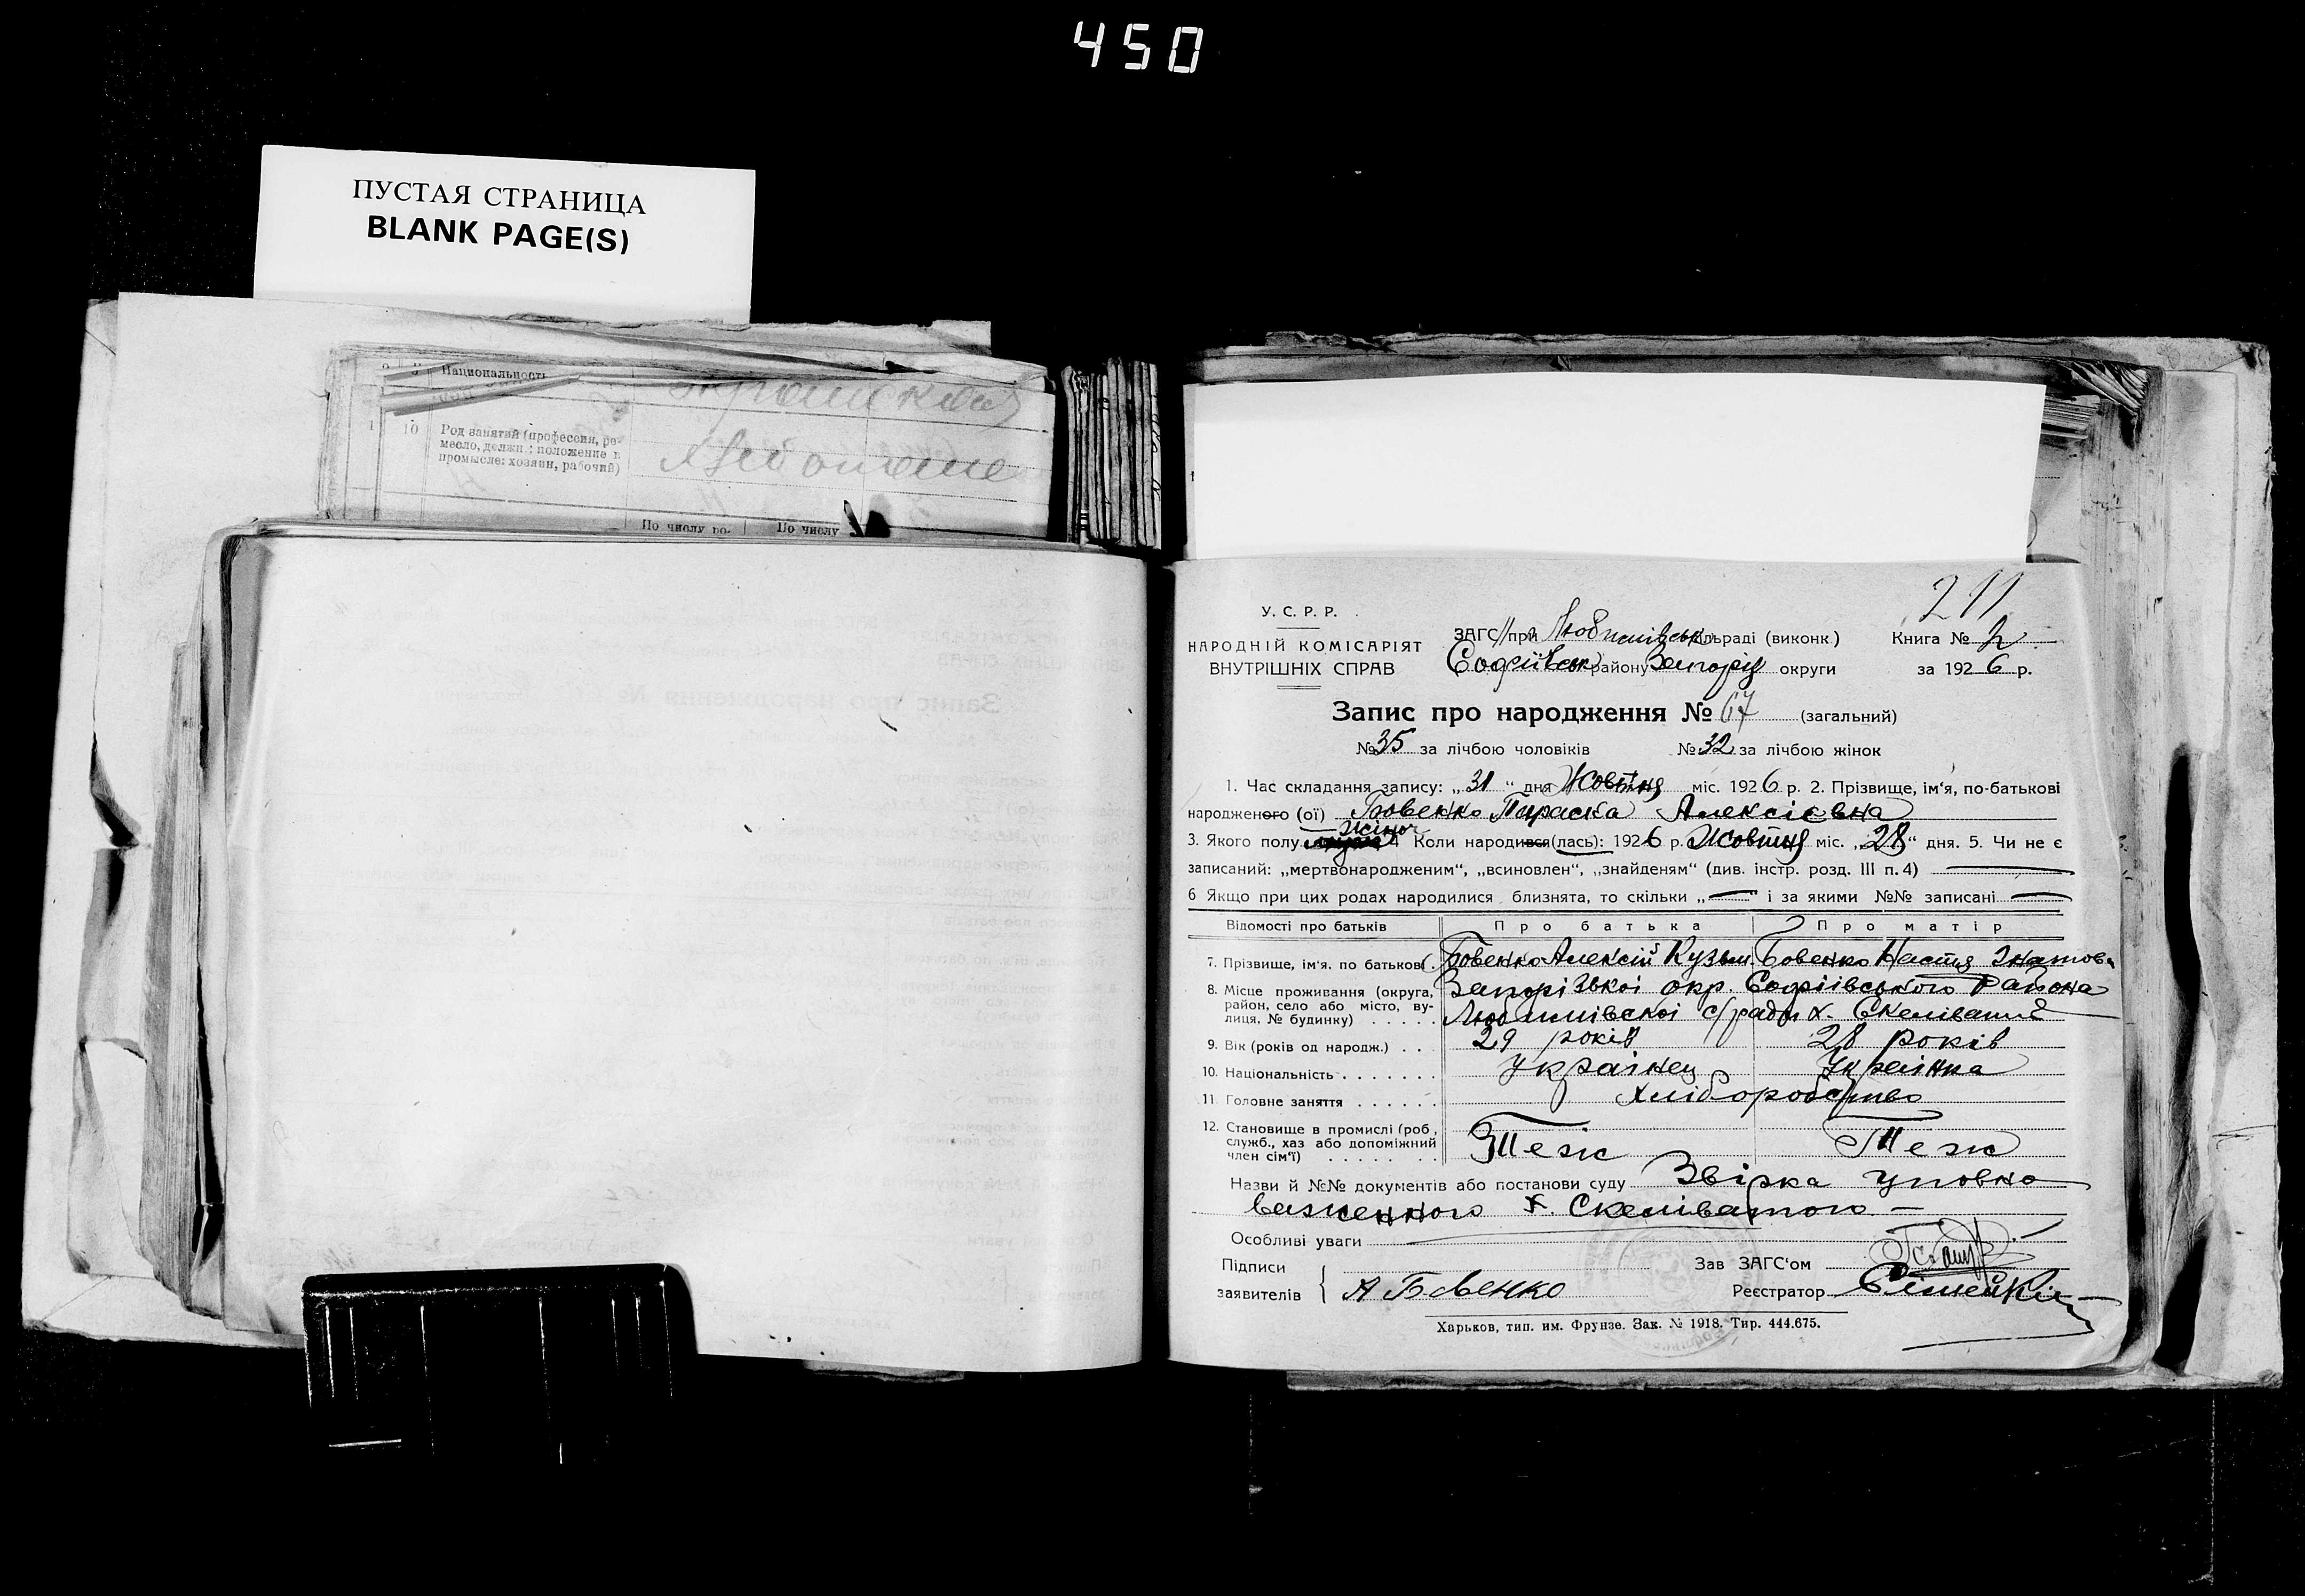 450
ПУСТАЯ СТРАНИЦА
BLANK PAGE(S)
9 Национальность
10 Род занятий (профессия, ре-
месло, должн.; положение в
промысле: хозяин, рабочий)
По числу ро- По числу
211
У. С. Р. Р.
НАРОДНІЙ КОМІСАРІЯТ
ВНУТРІШНІХ СПРАВ
ЗАГС при сільраді (виконк.) Книга № 2
Софіївськ району Запоріз округи за 1926 р.
Запис про народження № 67 (загальний)
№ 35 за лічбою чоловіків № 32 за лічбою жінок
1. Час складання запису: „31“ дня Жовтня міс. 1926 р. 2. Прізвище, ім'я, по-батькові
народженого (ої) Бовенко Параска Алексієвна
жіноч
3. Якого полу 4 Коли народився(лась): 1926 р. Жовтня міс. „28“ дня. 5. Чи не є
записаний: „мертвонародженим“, „всиновлен“, „знайденям“ (див. інстр. розд. III п. 4) —
6 Якщо при цих родах народилися близнята, то скільки „—“ і за якими №№ записані —
Відомості про батьків Про батька Про матір
7. Прізвище, ім'я. по батькові. Бовенко Алексій Кузьм. Бовенко Настя Ігнатовн
8. Місце проживання (округа, Запорізькоі окр. Софіівського Района
район, село або місто, ву- с/ради х. Скеліватий
лиця, № будинку)
9. Вік (років од народж.) 29 років 28 років
10. Національність Украінец Украінка
11. Головне заняття Хліборобство
12. Становище в промислі (роб., Теж Теж
служб., хаз або допоміжний
член сім'ї)
Назви й №№ документів або постанови суду Звірка уповно
важенного х. Скеліватого —
Особливі уваги
Підписи Зав ЗАГС'ом
заявителів А Бовенко Реєстратор
Харьков, тип. им. Фрунзе. Зак. № 1918. Тир. 444.675.